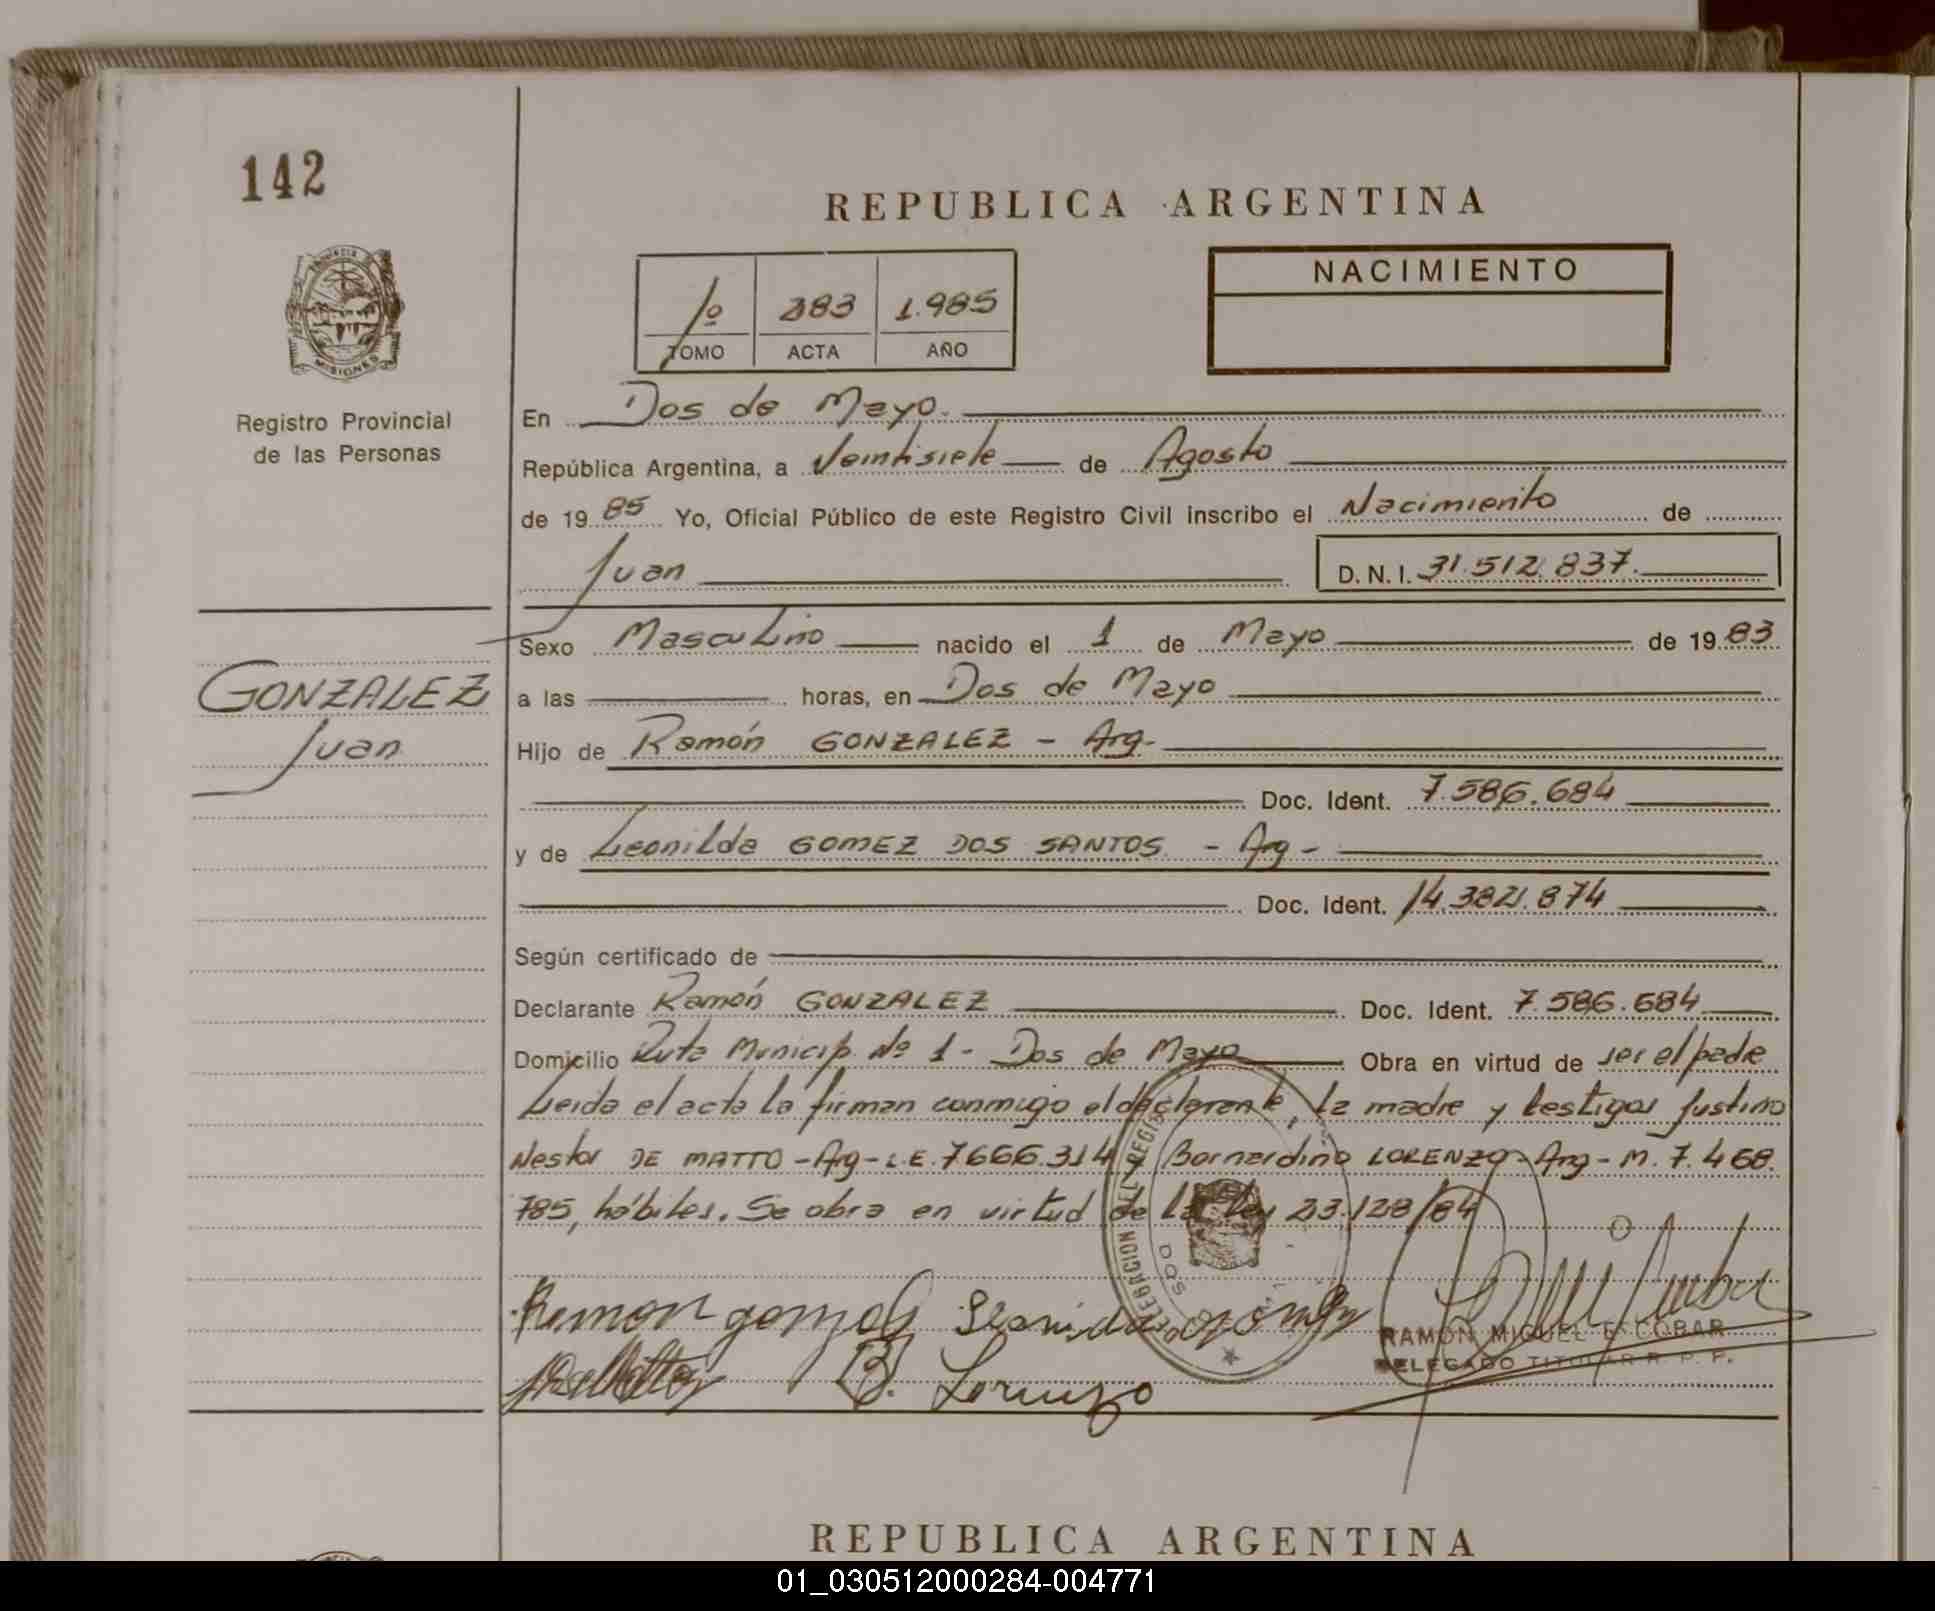 142
REPUBLICA ARGENTINA
PROVINCIA DE
MISIONES
1º 383 1.985
TOMO ACTA AÑO
NACIMIENTO
Registro Provincial
de las Personas
En Dos de Mayo.
República Argentina, a Veintisiete de Agosto
de 19 85 Yo, Oficial Público de este Registro Civil inscribo el Nacimiento de
Juan D. N. I. 31.512.837.
Sexo Masculino nacido el 1 de Mayo de 19 83
GONZALEZ
Juan
a las horas, en Dos de Mayo
Hijo de Ramón GONZALEZ - Arg-
Doc. Ident. 7.586.684
y de Leonilda GOMEZ DOS SANTOS - Arg -
Doc. Ident.
Según certificado de
Declarante Ramón GONZALEZ Doc. Ident. 7.586.684
Domicilio Ruta Municip. Nº 1 - Dos de Mayo Obra en virtud de ser el padre
Leida el acta la firman conmigo el declarante, la madre y testigos Justino
Nestor DE MATTO - Arg - L.E. 7.666.314 y Bernardino LORENZO - Arg - M. 7.468.
785, hábiles. Se obra en virtud de la ley 23.128/84
DOS
Ramon
B. Lorenzo
RAMON MIGUEL ESCOBAR
DELEGADO TITULAR R. P. P.
REPUBLICA ARGENTINA
01_030512000284-004771